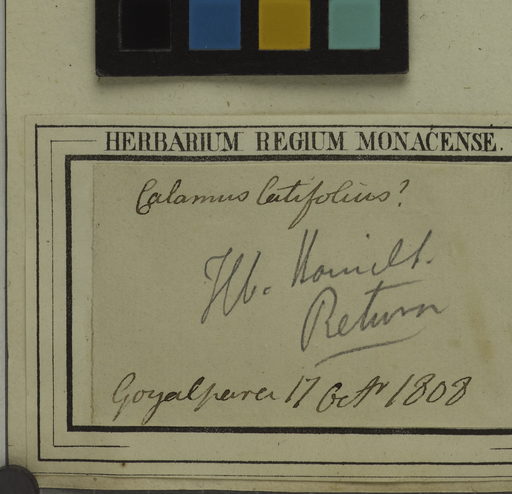 HERBARIUM REGIUM MONACENSE.
Calamus latifolius?
Hb. Hamilt.
Return
Goyalpara 17 Octr 1808